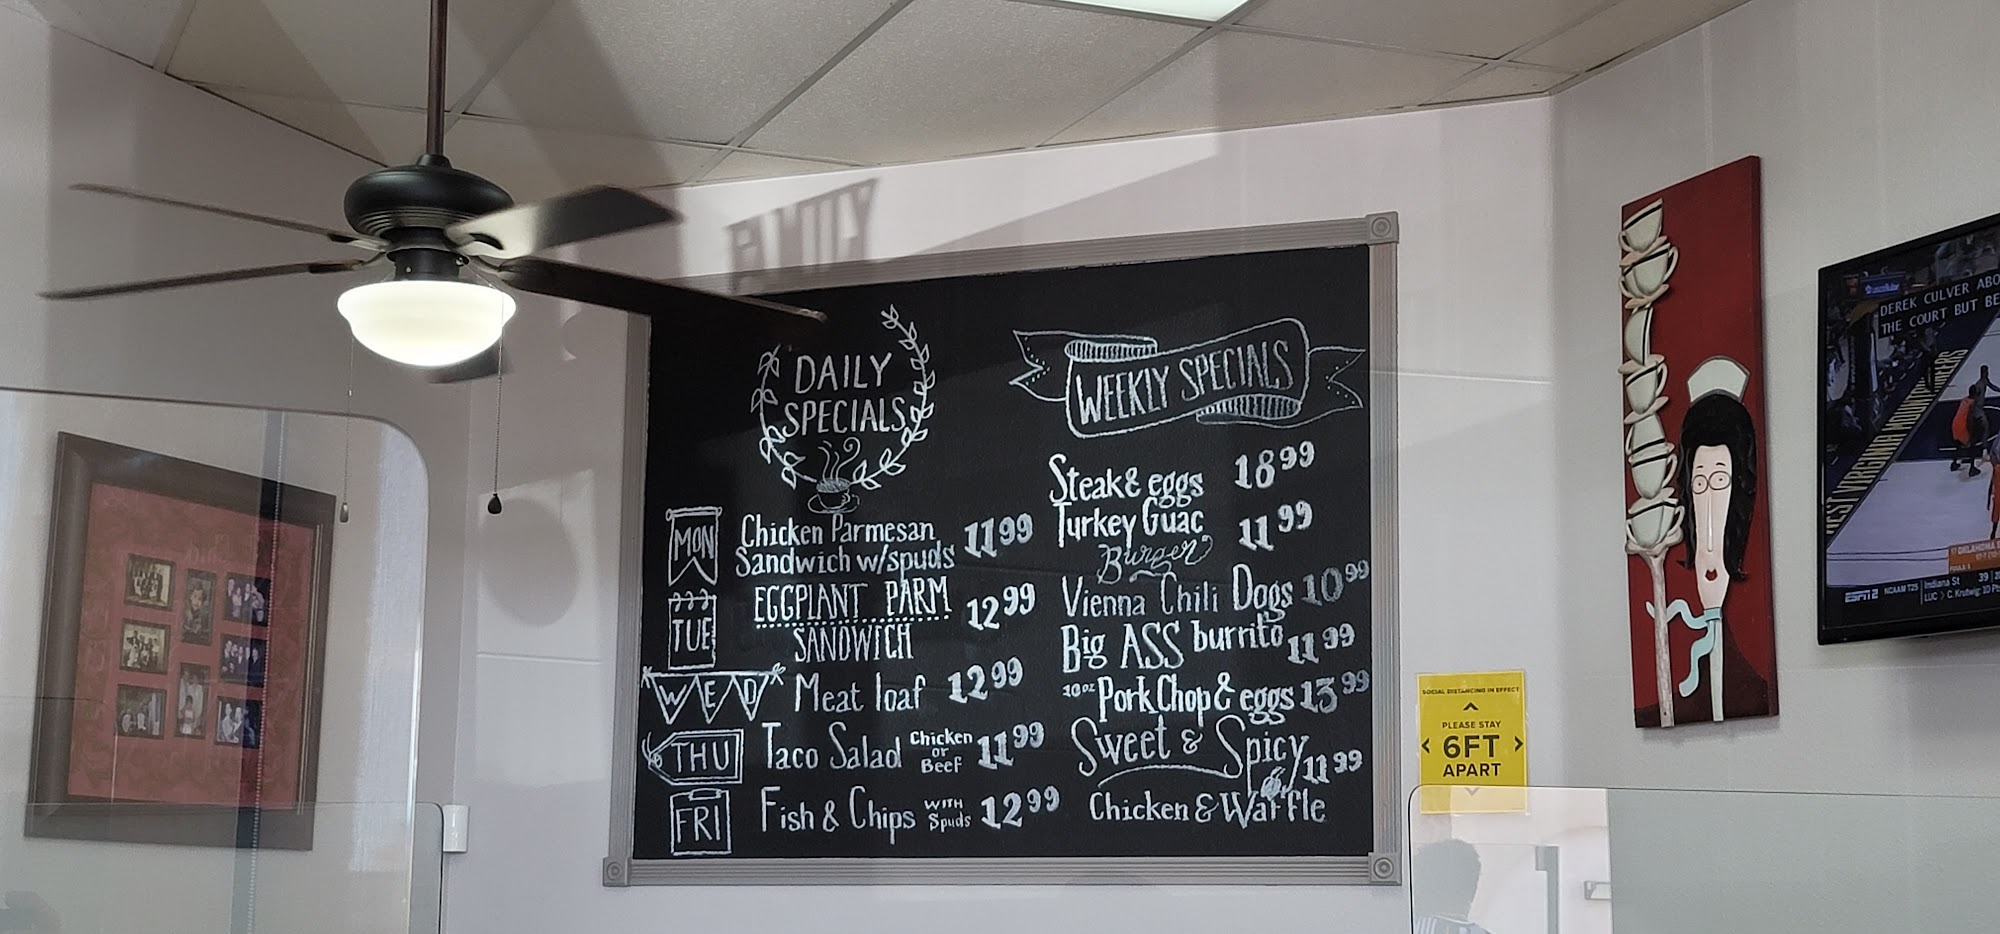 FAMILY
DAILY
SPECIALS
MON
Chicken Parmesan
Sandwich w/spuds
11.99
TUE
EGGPLANT PARM
SANDWICH
12.99
WED
Meat loaf 12.99
THU
Taco Salad
Chicken
or
Beef
11.99
FRI
Fish & Chips
WITH
Spuds
12.99
WEEKLY SPECIALS
Steak & eggs 18.99
Turkey Guac
Burger
11.99
Vienna Chili Dogs 10.99
Big ASS burrito 11.99
10oz Pork Chop & eggs 13.99
Sweet & Spicy
11.99
Chicken & Waffle
SOCIAL DISTANCING IN EFFECT
PLEASE STAY
6FT
APART
DEREK CULVER ABO
THE COURT BUT BE
EST VIRGINIA MOUNTAINEERS
OKLAHOMA
ESPN2
NCAAM T25
Indiana St 39
LUC > C. Krutwig: 10